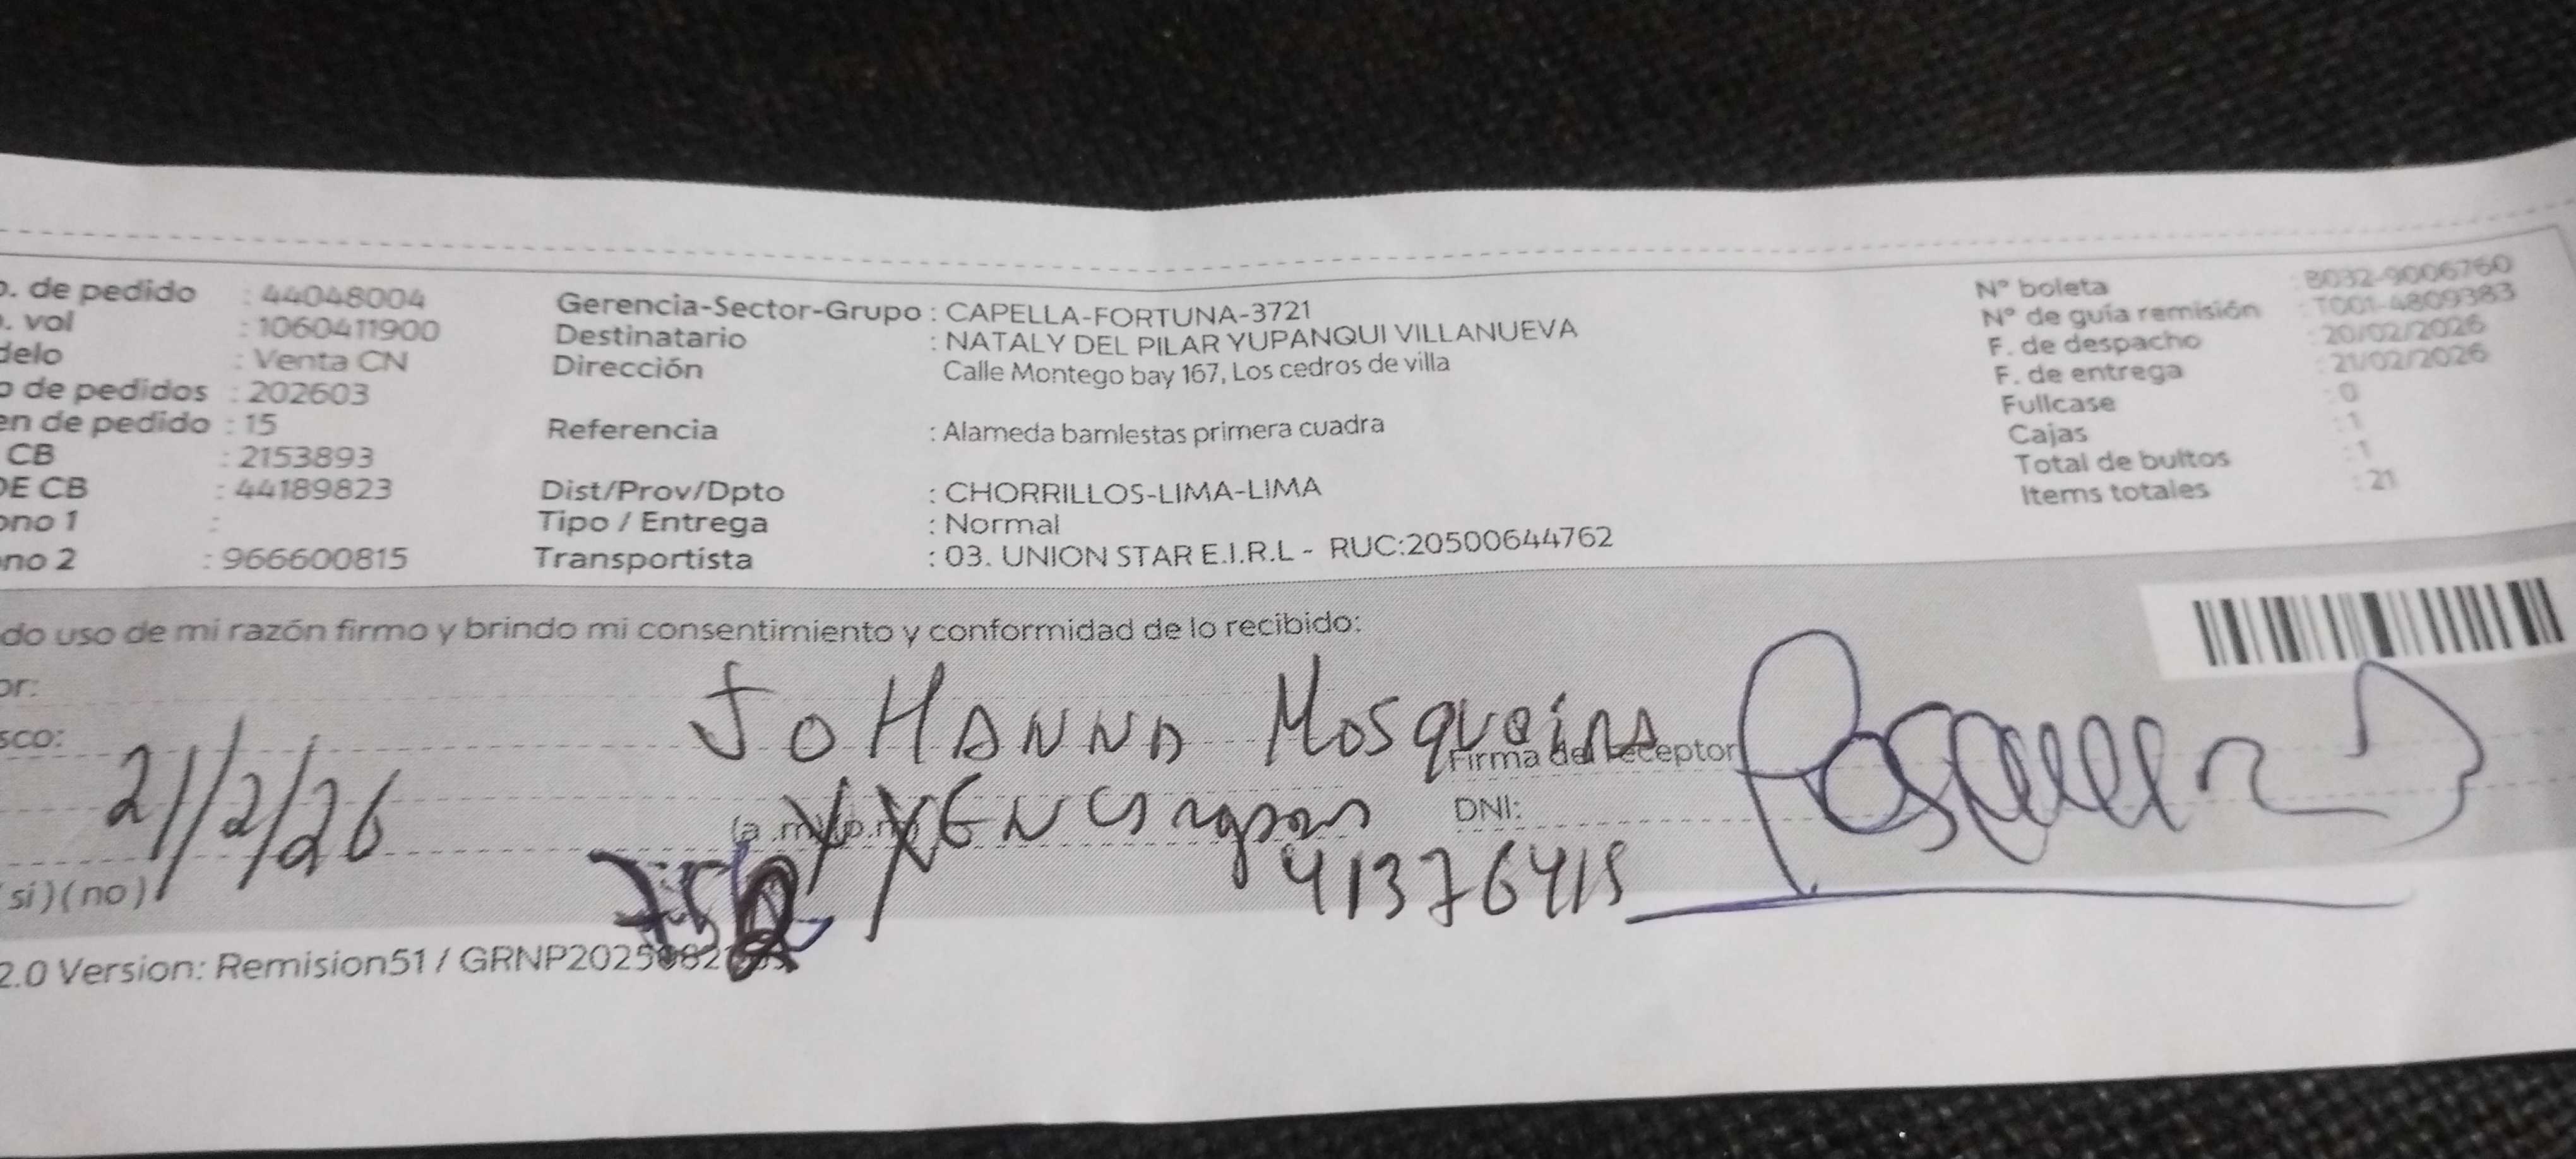 o. de pedido : 44048004
o. vol : 1060411900
delo : Venta CN
o de pedidos : 202603
en de pedido : 15
CB : 2153893
DE CB : 44189823
ono 1 :
no 2 : 966600815
Gerencia-Sector-Grupo : CAPELLA-FORTUNA-3721
Destinatario : NATALY DEL PILAR YUPANQUI VILLANUEVA
Dirección Calle Montego bay 167, Los cedros de villa
Referencia : Alameda bamlestas primera cuadra
Dist/Prov/Dpto : CHORRILLOS-LIMA-LIMA
Tipo / Entrega : Normal
Transportista : 03. UNION STAR E.I.R.L - RUC:20500644762
N° boleta : B032-9006760
N° de guía remisión : T001-4809383
F. de despacho : 20/02/2026
F. de entrega : 21/02/2026
Fullcase : 0
Cajas : 1
Total de bultos : 1
Items totales : 21
do uso de mi razón firmo y brindo mi consentimiento y conformidad de lo recibido:
or:
JOHANNA Mosqueira
sco:
Firma del receptor
21/2/26
(a.m)(p.m)
DNI:
41376415
si)(no)
2.0 Version: Remision51 / GRNP202508